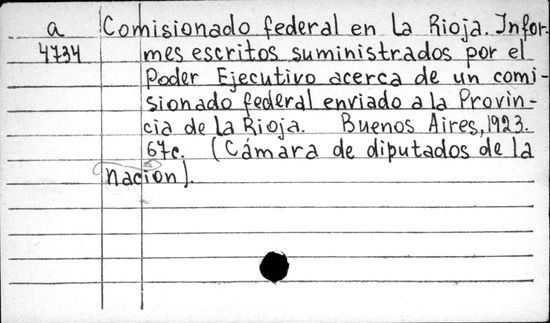 a Comisionado federal en La Rioja. Infor-
4734 mes escritos suministrados por el
Poder Ejecutivo acerca de un comi-
sionado federal enviado a la Provin-
cia de La Rioja. Buenos Aires, 1923.
67c. (Cámara de diputados de la
nación).